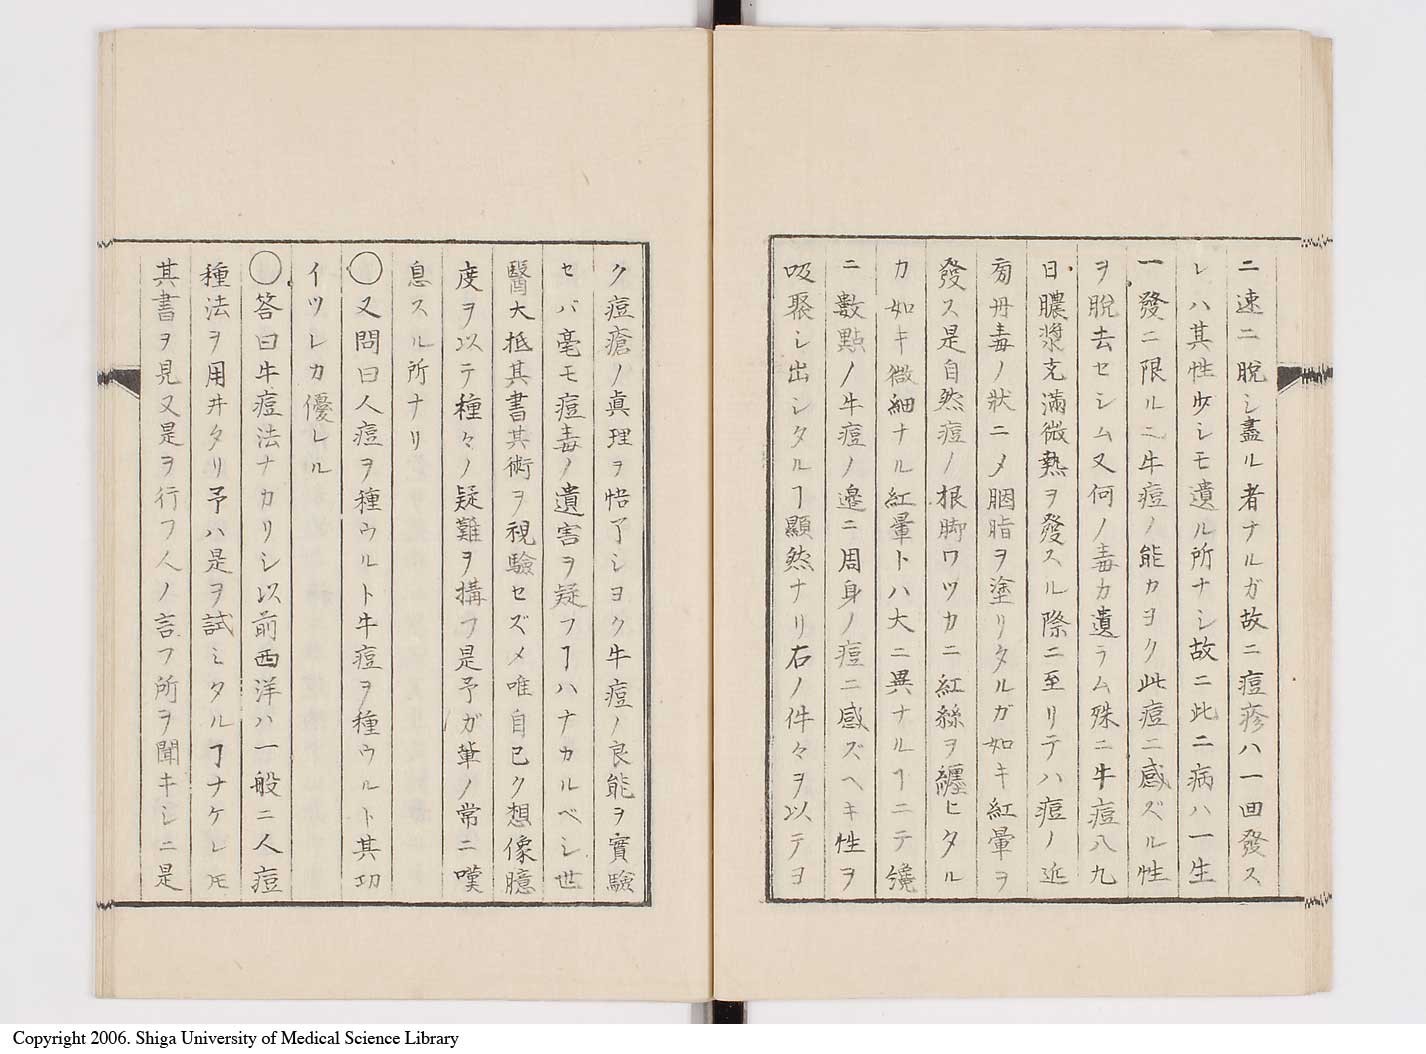 ニ速ニ脱シ盡ル者ナルガ故ニ痘疹ハ一回發ス
レハ其性少シモ遺ル所ナシ故ニ此二病ハ一生
一發ニ限ル牛痘ノ能カヨク此痘ニ感ズル性
ヲ脱去セシム又何ノ毒カ遺ラム殊ニ牛痘八九
日膿漿充滿微熱ヲ發スル際ニ至リテハ痘ノ近
旁丹毒ノ狀ニメ胭脂ヲ塗リタルガ如キ紅暈ヲ
發ス是自然痘ノ根脚ワツカニ紅絲ヲ纏ヒタル
カ如キ微細ナル紅暈トハ大ニ異ナルヿニテ纔
ニ數點ノ牛痘ノ邊ニ周身ノ痘ニ感ズヘキ性ヲ
吸聚シ出シタルヿ顯然ナリ右ノ件々ヲ以テヨ
ク痘瘡ノ眞理ヲ悟了シヨク牛痘ノ良能ヲ實驗
セバ毫モ痘毒ノ遺害ヲ疑フヿハナカルベシ世
醫大抵其書其術ヲ視驗セズメ唯自己ク想像臆
度ヲ以テ種々ノ疑難ヲ搆フ是予ガ輩ノ常ニ嘆
息スル所ナリ
〇又問曰人痘ヲ種ウルト牛痘ヲ種ウルト其功
イツレカ優レル
〇答曰牛痘法ナカリシ以前西洋ハ一般ニ人痘
種法ヲ用井タリ予ハ是ヲ試ミタルヿナケレ𪜈
其書ヲ見又是ヲ行フ人ノ言フ所ヲ聞キシニ是
Copyright 2006. Shiga University of Medical Science Library